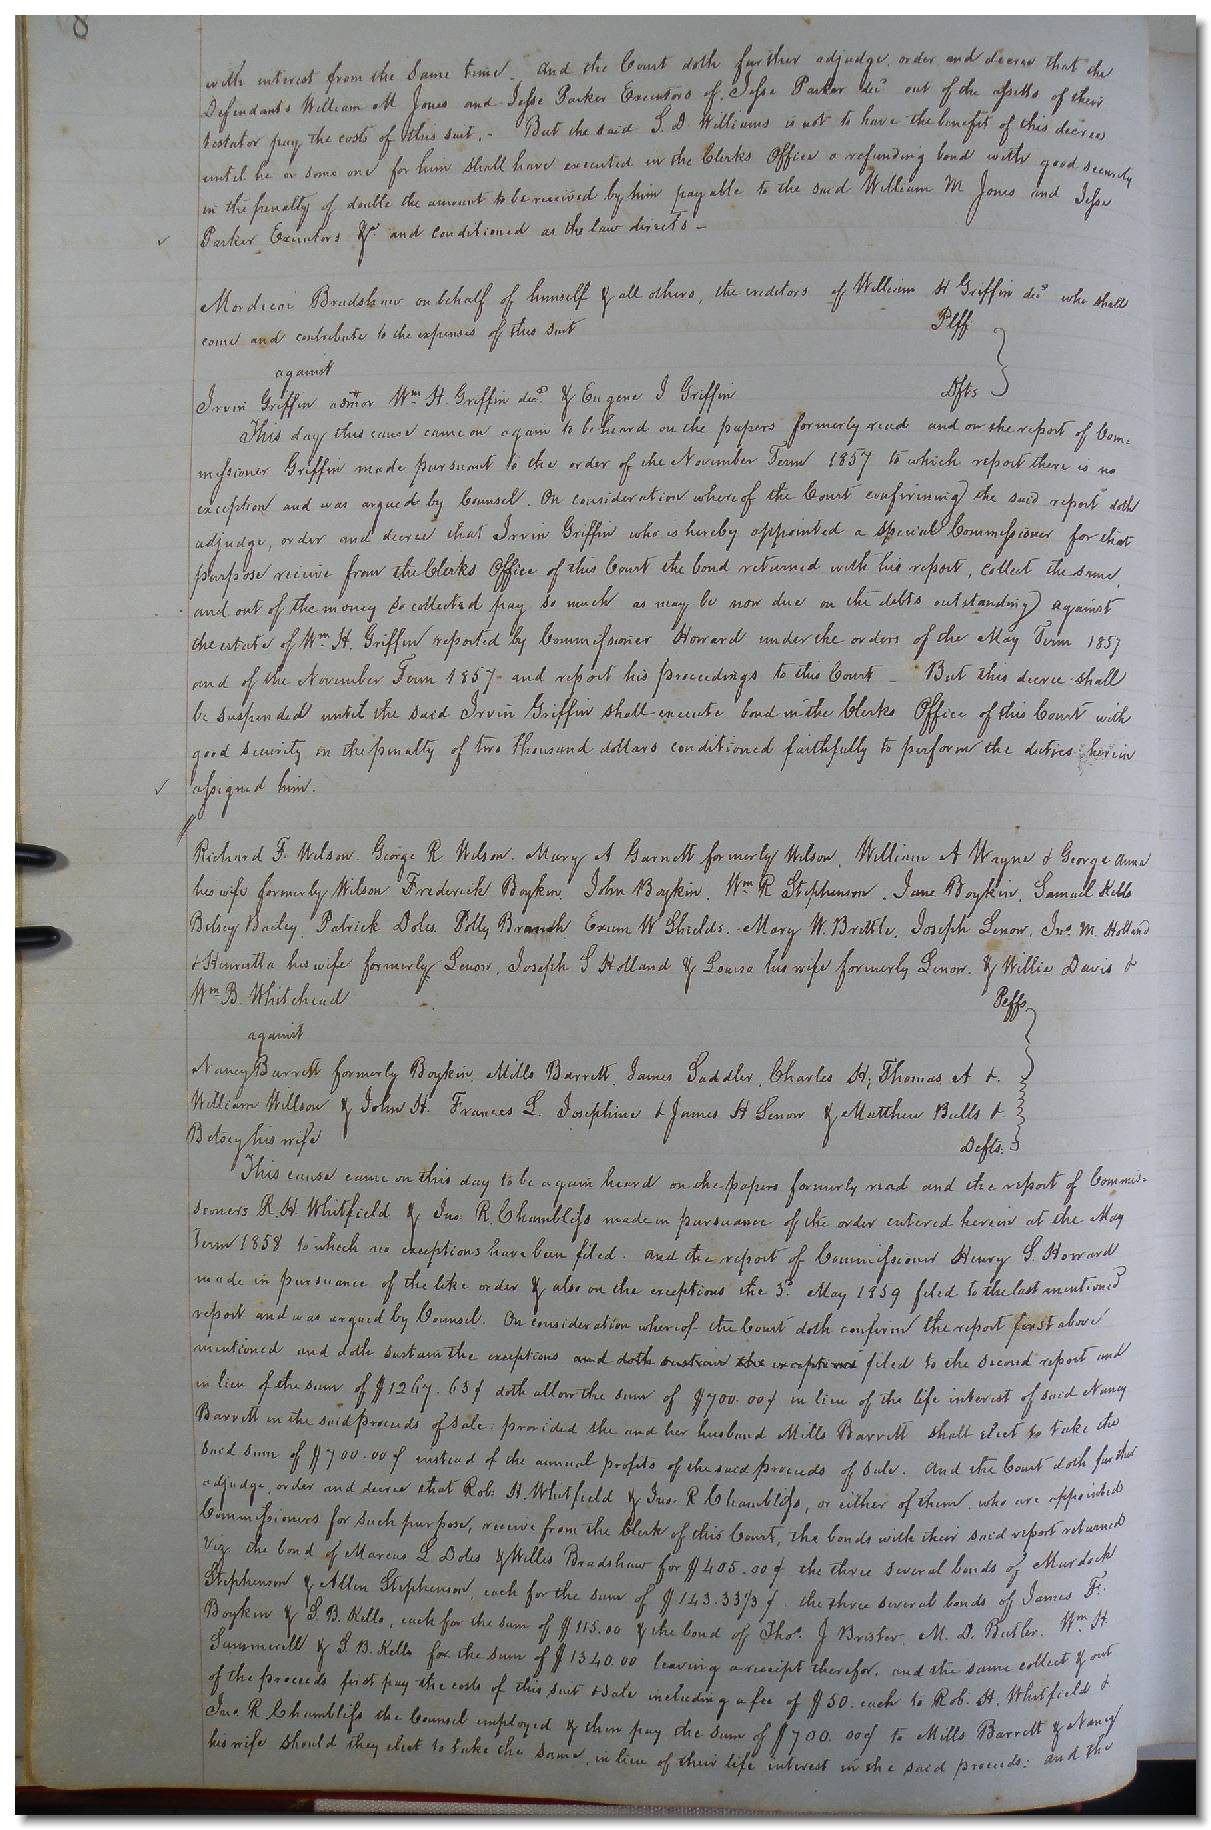 8
with interest from the same time. And the Court doth further adjudge, order and decree that the
Defendants William M Jones and Jesse Parker Executors of Jesse Parker decd out of the assetts of their
testator pay the costs of this suit. - But the said S. D Williams is not to have the benefit of this decree
until he or some one for him shall have executed in the Clerks Office a refunding bond with good security
in the penalty of double the amount to be received by him payable to the said William M Jones and Jesse
Parker Executors &c and conditioned as the law directs -
Mordicai Bradshaw on behalf of himself & all others, the creditors of William H Griffin decd who shall
come and contribute to the expenses of this suit Plff
against
Irvin Griffin admor Wm H. Griffin decd & Eugene I Griffin Dfts
This day this cause came on again to be heard on the papers formerly read and on the report of Com-
missioner Griffin made pursuant to the order of the November Term 1857 to which report there is no
exception and was argued by Counsel. On consideration whereof the Court confirming the said report doth
adjudge, order and decree that Irvin Griffin who is hereby appointed a special Commissioner for that
purpose receive from the Clerks Office of this Court the bond returned with his report, collect the same,
and out of the money so collected pay so much as may be now due on the debts outstanding against
the estate of Wm H. Griffin reported by Commissioner Howard under the orders of the May Term 1857
and of the November Term 1857 and report his proceedings to this Court - But this decree shall
be suspended until the said Irvin Griffin shall execute bond in the Clerks Office of this Court with
good security in the penalty of two thousand dollars conditioned faithfully to perform the duties herein
assigned him.
Richard F. Wilson. George R Wilson. Mary A Garnett formerly Wilson, William A Wayne & George Anna
his wife formerly Wilson Frederick Boykin, John Boykin, Wm R Stephenson, Jane Boykin, Samuel Kello
Betsey Bailey, Patrick Doles Polly Branch Exum W Shields. Mary W. Brittle, Joseph Lenow, Jno. M. Holland
& Henrietta his wife formerly Lenow, Joseph S Holland & Louisa his wife formerly Lenow. & Willie Davis &
Wm B. Whitehead Peffs
against
Nancy Barrett formerly Boykin, Mills Barrett, James Saddler, Charles H, Thomas A &
William Willson & John H. Frances L. Josephine & James H Lenow & Matthew Bulls &
Betsey his wife Defts.
This cause came on this day to be again heard on the papers formerly read and the report of Commis-
sioners R. H Whitfield & Jno. R. Chambliss made in pursuance of the order entered herein at the May
Term 1858 to which no exceptions have been filed. and the report of Commissioner Henry S. Howard
made in pursuance of the like order & also on the exceptions the 3d May 1859 filed to the last mentioned
report and was argued by Counsel. On consideration whereof the Court doth confirm the report first above
mentioned and doth sustain the exceptions and doth sustain the exceptions filed to the second report and
in lieu of the sum of $1267.63¢ doth allow the sum of $700.00¢ in lieu of the life interest of said Nancy
Barrett in the said proceeds of sale: provided she and her husband Mills Barrett shall elect to take the
said sum of $700.00¢ instead of the annual profits of the said proceeds of sale. And the Court doth further
adjudge, order and decree that Rob. H. Whitfield & Jno. R Chambliss, or either of them, who are appointed
Commissioners for such purpose, receive from the Clerk of this Court, the bonds with their said report returned
Viz the bond of Marcus L Doles & Willis Bradshaw for $405.00¢ the three several bonds of Murdock
Stephenson & Allen Stephenson, each for the sum of $143.33⅓¢. the three several bonds of James F.
Boykin & S. B. Kello, each for the sum of $115.00 & the bond of Thos. J Brister, M. D. Butler, Wm H
Summerell & S B. Kello for the sum of $1340.00 leaving a receipt therefor, and the same collect & out
of the proceeds first pay the costs of this suit & sale including a fee of $50. each to Rob. H. Whitfield &
Jno R Chambliss the Counsel employed & then pay the sum of $700.00¢ to Mills Barrett & Nancy
his wife should they elect to take the same, in lieu of their life interest in the said proceeds: and the